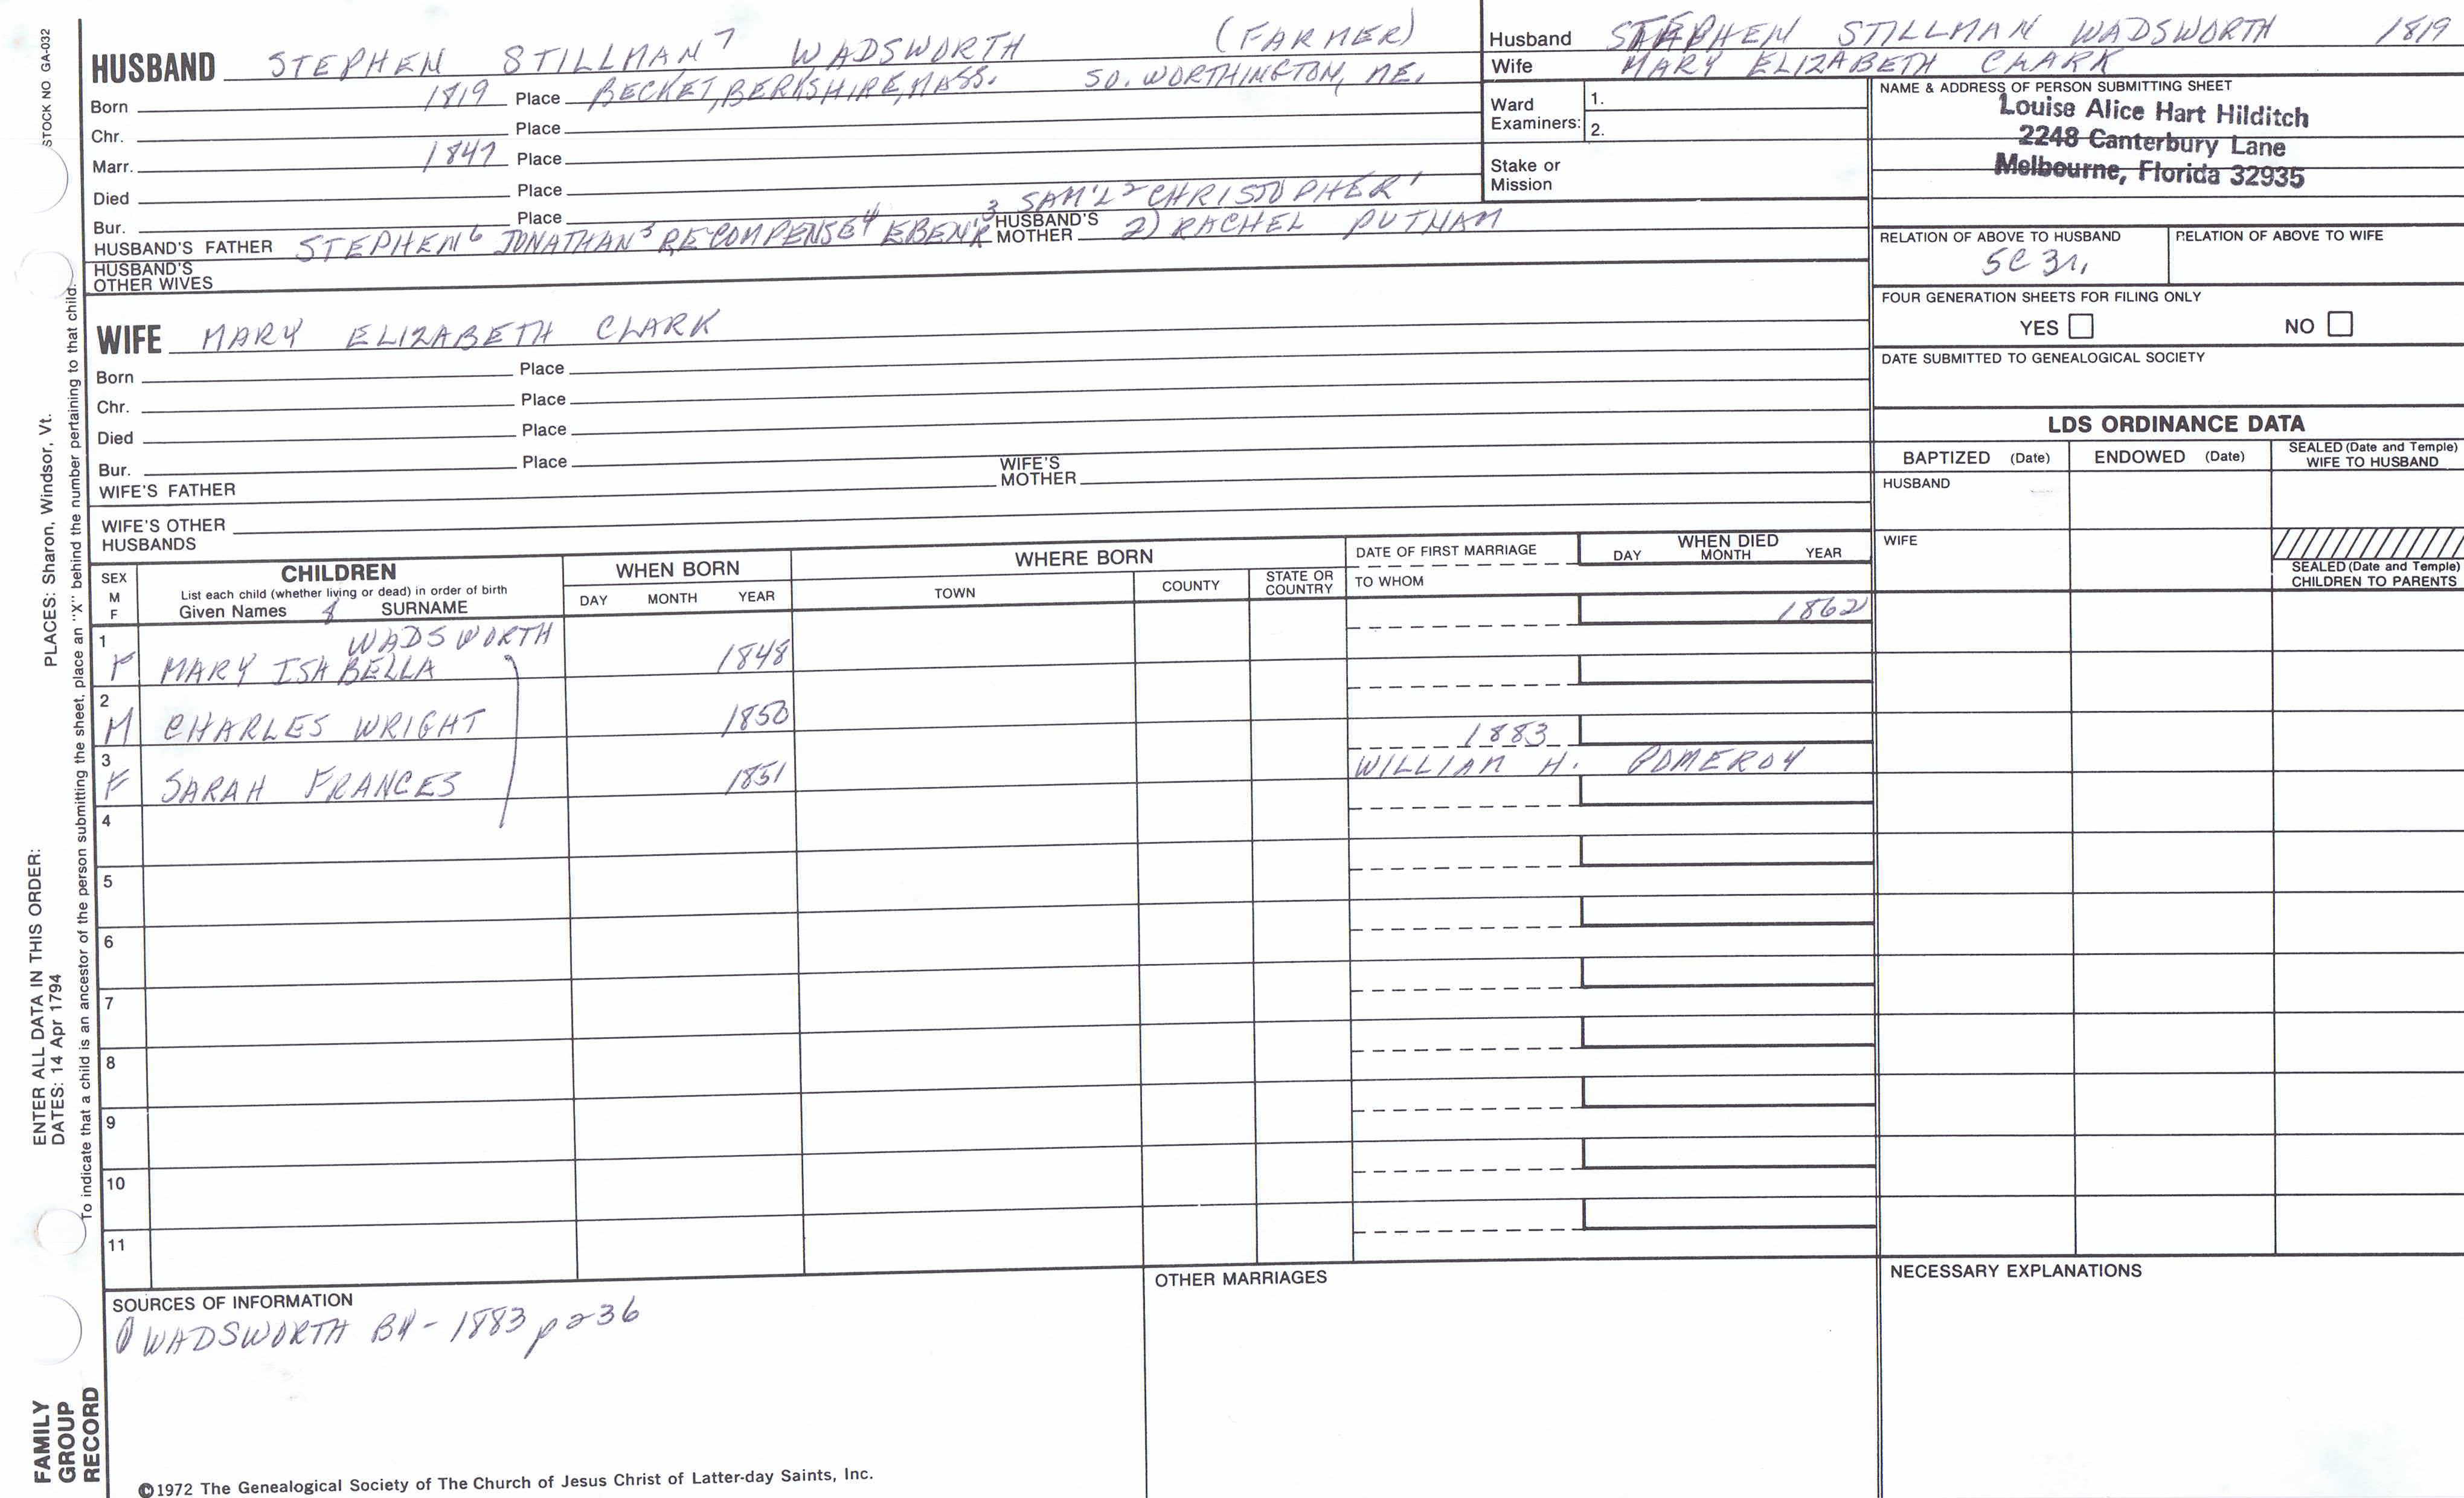 STOCK NO GA-032
HUSBAND STEPHEN STILLMAN 7 WADSWORTH (FARMER)
Born 1819 Place BECKET, BERKSHIRE, MASS. SO. WORTHINGTON, ME.
Chr. Place
Marr. 1847 Place
Died Place
Bur. Place 3 SAM'L 2 CHRISTOPHER 1
HUSBAND'S FATHER STEPHEN 6 JONATHAN 5 RECOMPENSE 4 EBEN'R HUSBAND'S MOTHER 2) RACHEL PUTNAM
HUSBAND'S OTHER WIVES
WIFE MARY ELIZABETH CLARK
Born Place
Chr. Place
Died Place
Bur. Place
WIFE'S FATHER WIFE'S MOTHER
WIFE'S OTHER HUSBANDS
Husband STEPHEN STILLMAN WADSWORTH 1819
Wife MARY ELIZABETH CLARK
Ward Examiners: 1.
2.
Stake or Mission
NAME & ADDRESS OF PERSON SUBMITTING SHEET
Louise Alice Hart Hilditch
2248 Canterbury Lane
Melbourne, Florida 32935
RELATION OF ABOVE TO HUSBAND RELATION OF ABOVE TO WIFE
5C 3r.
FOUR GENERATION SHEETS FOR FILING ONLY
YES NO
DATE SUBMITTED TO GENEALOGICAL SOCIETY
LDS ORDINANCE DATA
BAPTIZED (Date) ENDOWED (Date) SEALED (Date and Temple) WIFE TO HUSBAND
HUSBAND
WIFE
SEALED (Date and Temple) CHILDREN TO PARENTS
SEX M F
CHILDREN
List each child (whether living or dead) in order of birth
Given Names SURNAME
WHEN BORN
DAY MONTH YEAR
WHERE BORN
TOWN COUNTY STATE OR COUNTRY
DATE OF FIRST MARRIAGE
TO WHOM
WHEN DIED
DAY MONTH YEAR
1 WADSWORTH 1862
F MARY ISABELLA 1848
2
M CHARLES WRIGHT 1850
3 1883
F SARAH FRANCES 1851 WILLIAM H. POMEROY
4
5
6
7
8
9
10
11
SOURCES OF INFORMATION
① WADSWORTH BY - 1883 p 236
OTHER MARRIAGES
NECESSARY EXPLANATIONS
©1972 The Genealogical Society of The Church of Jesus Christ of Latter-day Saints, Inc.
PLACES: Sharon, Windsor, Vt.
To indicate that a child is an ancestor of the person submitting the sheet, place an "X" behind the number pertaining to that child.
ENTER ALL DATA IN THIS ORDER:
DATES: 14 Apr 1794
FAMILY
GROUP
RECORD